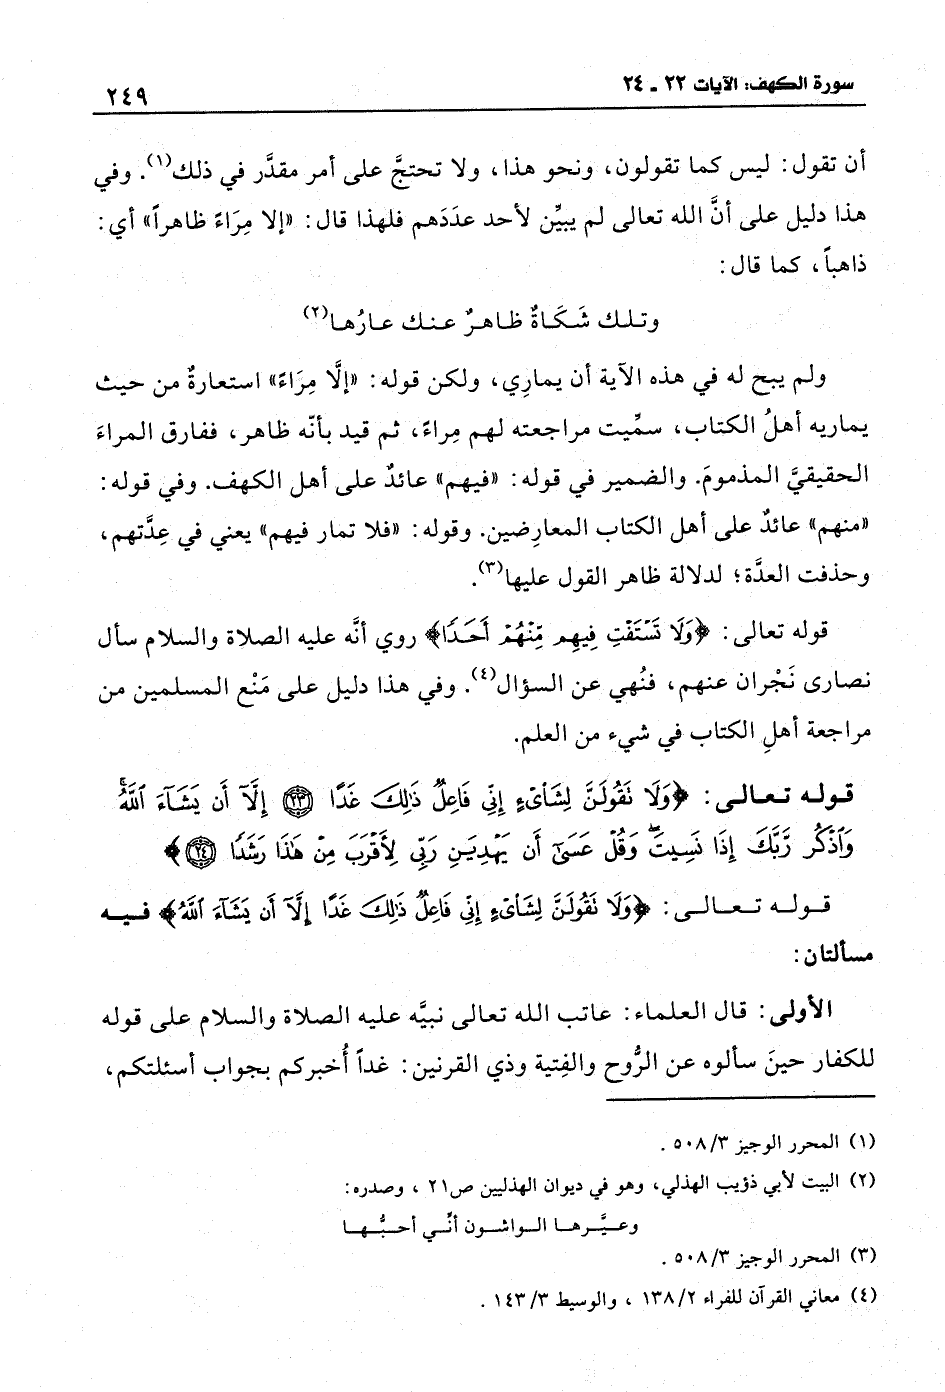 سورة الكهف: الآيات ٢٢ - ٢٤
٢٤٩
أن تقول: ليس كما تقولون، ونحو هذا، ولا تحتجَّ على أمر مقدَّر في ذلك(١). وفي
هذا دليل على أنَّ الله تعالى لم يبيِّن لأحد عدَدَهم فلهذا قال: «إلا مِرَاءً ظاهراً» أي:
ذاهباً، كما قال:
وتلك شَكَاةٌ ظاهرٌ عنك عارُها(٢)
ولم يبح له في هذه الآية أن يماري، ولكن قوله: «إلَّا مِرَاءً» استعارةٌ من حيث
يماريه أهلُ الكتاب، سمِّيت مراجعته لهم مِراءً، ثم قيد بأنّه ظاهر، ففارق المراءَ
الحقيقيَّ المذمومَ. والضمير في قوله: «فيهم» عائدٌ على أهل الكهف. وفي قوله:
«منهم» عائدٌ على أهل الكتاب المعارِضين. وقوله: «فلا تمار فيهم» يعني في عِدَّتهم،
وحذفت العدَّة؛ لدلالة ظاهر القول عليها(٣).
قوله تعالى: ﴿وَلَا تَسْتَفْتِ فِيهِم مِّنْهُمْ أَحَدًا﴾ روي أنَّه عليه الصلاة والسلام سأل
نصارى نَجْران عنهم، فنُهي عن السؤال(٤). وفي هذا دليل على مَنْع المسلمين من
مراجعة أهلِ الكتاب في شيء من العلم.
قوله تعالى: ﴿وَلَا نَقُولَنَّ لِشَاْىْءٍ إِنِّي فَاعِلٌ ذَلِكَ غَدًا ٢٣ إِلَّآ أَن يَشَآءَ ٱللَّهُۚ
وَٱذْكُر رَّبَّكَ إِذَا نَسِيتَۖ وَقُلْ عَسَىٰٓ أَن يَهْدِيَنِ رَبِّي لِأَقْرَبَ مِنْ هَذَا رَشَدًا ٢٤﴾
قوله تعالى: ﴿وَلَا نَقُولَنَّ لِشَاْىْءٍ إِنِّي فَاعِلٌ ذَلِكَ غَدًا إِلَّآ أَن يَشَآءَ ٱللَّهُ﴾ فيه
مسألتان:
الأولى: قال العلماء: عاتب الله تعالى نبيَّه عليه الصلاة والسلام على قوله
للكفار حينَ سألوه عن الرُّوح والفِتية وذي القرنين: غداً أُخبركم بجواب أسئلتكم،
(١) المحرر الوجيز ٥٠٨/٣ .
(٢) البيت لأبي ذؤيب الهذلي، وهو في ديوان الهذليين ص٢١ ، وصدره:
وعيَّرها الواشون أنِّي أحبُّها
(٣) المحرر الوجيز ٥٠٨/٣ .
(٤) معاني القرآن للفراء ١٣٨/٢ ، والوسيط ١٤٣/٣ .